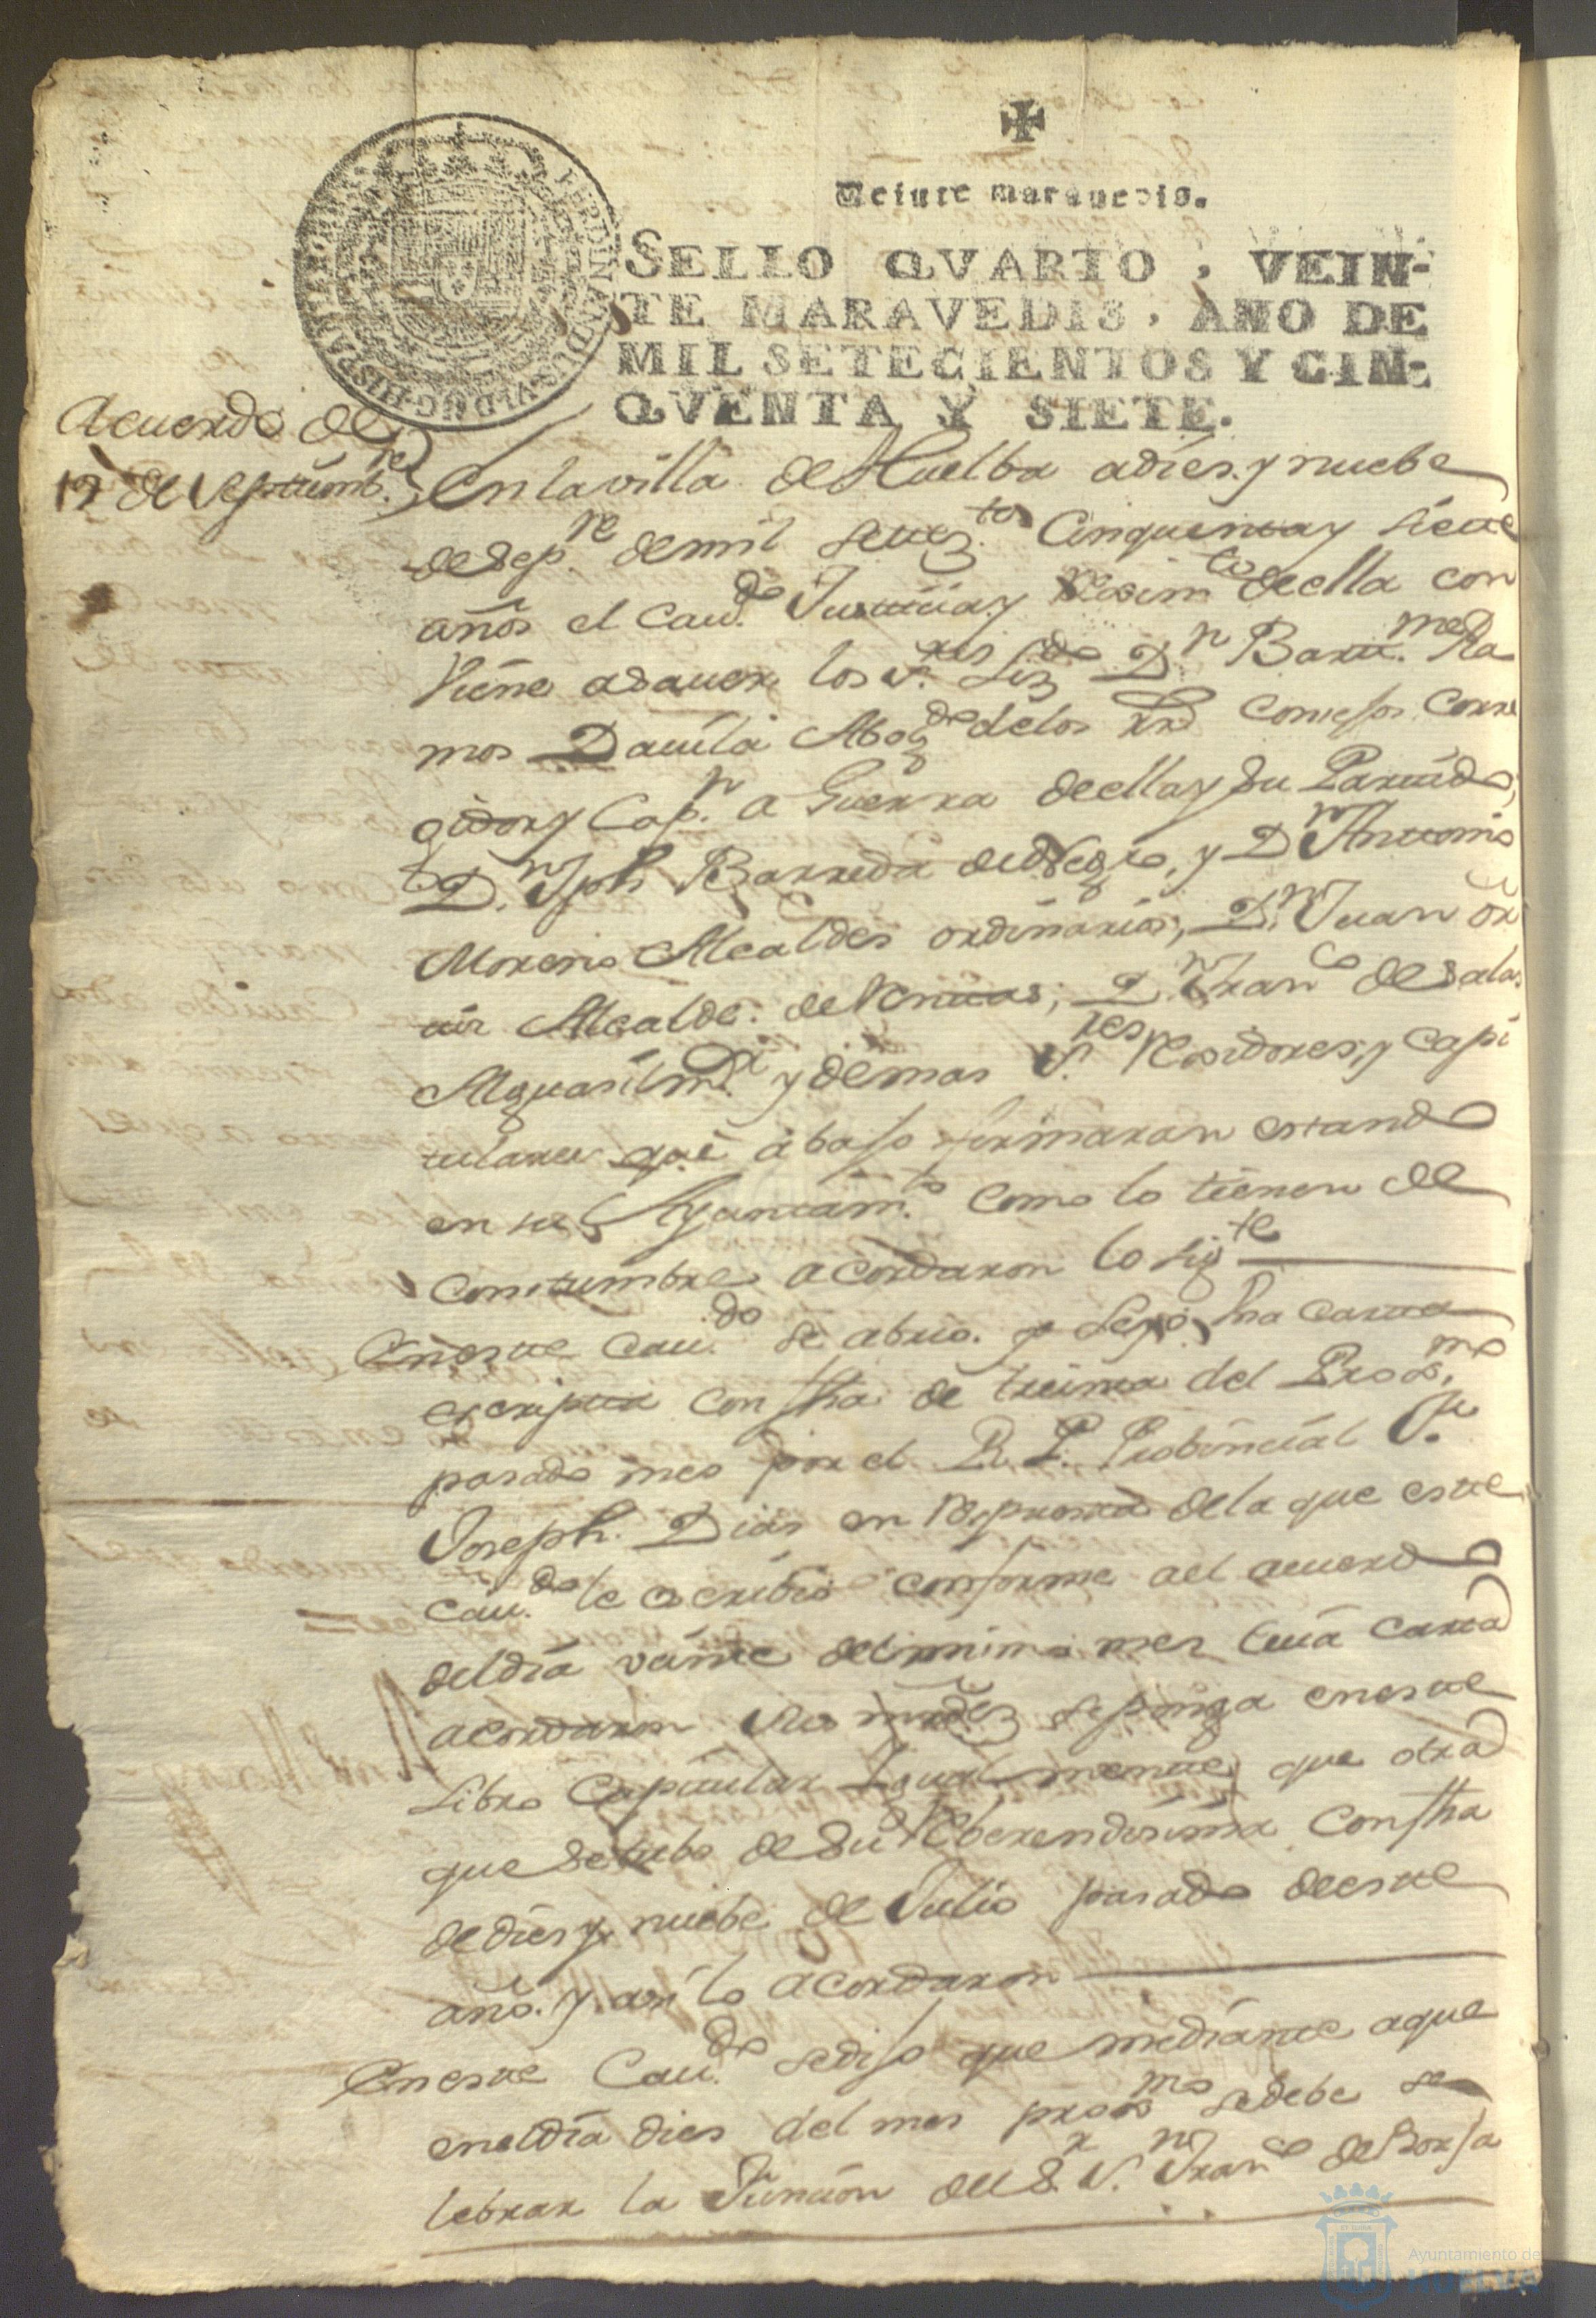 Veinte maravedis.
SELLO QVARTO, VEIN-
TE MARAVEDIS, AÑO DE
MIL SETECIENTOS Y CIN-
QVENTA Y SIETE.
Acuerdo de
19 de Septiemb.re
En la villa de Huelba a dies y nuebe
de Sep.re de mil setez.tos Cinquenta y siete
años el Cav.do Justicia y Regim.to de ella con
viene a saver los S.res Liz.do D.n Bart.me Ra
mos Davila Abog.do de los R.s Consejos Corre
gidor y Cap.n a Guerra de ella y su Partido,
D.n Jph Barreda y D.n Antonio
Moreno Alcaldes ordinarios, D.n Juan Or
tiz Alcalde de D.n Fran.co de Salas
Alguasil m.or y demas S.res Rexidores y Capi
tulares que abajo firmaran estando
en su Ayuntam.to como lo tienen de
Constumbre acordaron lo sig.te
En este Cav.do se abrio y leyo Vna Carta
escripta con fha de treinta del Prox.mo
pasado mes por el R. P. Probincial
Joseph Dias en Respuesta de la que este
Cav.do le escribio conforme a el acuerdo
del dia veinte del mismo mes Cuia Carta
acordaron sus mrdes se ponga en este
Libro Capitular Igualmente que otra
que se tubo de Su Reberendisima Con fha
de dies y nuebe de Julio pasado de este
año y asi lo acordaron
En este Cav.do se dijo que mediante a que
en el dia dies del mes prox.mo se debe se
lebrar la Funcion del S.r S.n Fran.co de Borja
Ayuntamiento de
HUELVA